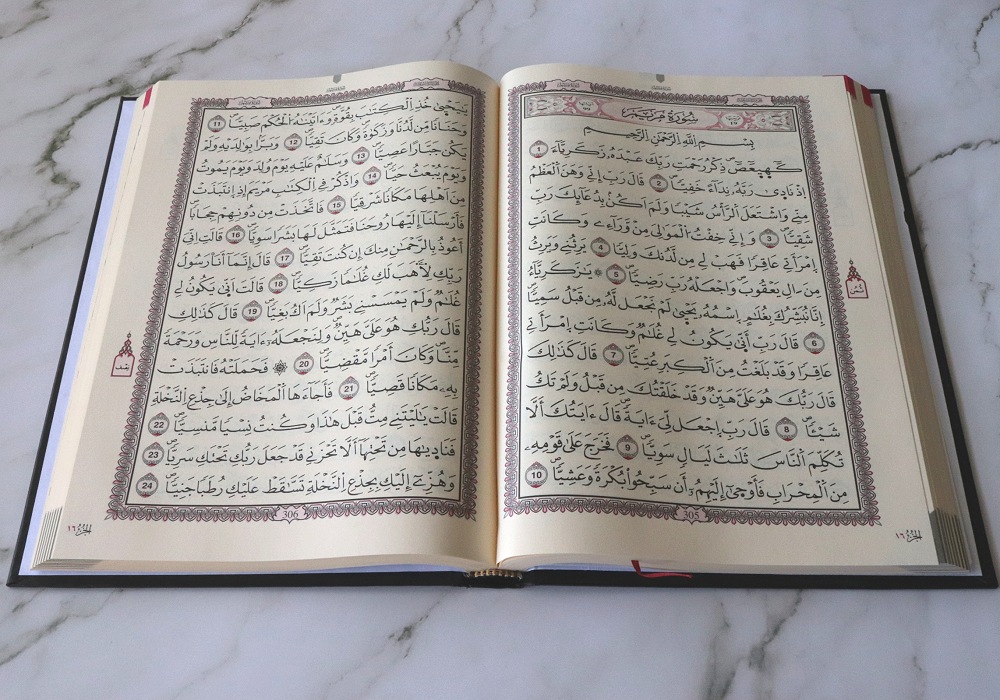 سُورَةُ مَرْيَمَ
بِسْمِ اللَّهِ الرَّحْمَٰنِ الرَّحِيمِ
كَهيعَصَ ذِكْرُ رَحْمَتِ رَبِّكَ عَبْدَهُ زَكَرِيَّاءَ 1
إِذْ نَادَىٰ رَبَّهُ نِدَاءً خَفِيًّا 2 قَالَ رَبِّ إِنِّي وَهَنَ الْعَظْمُ
مِنِّي وَاشْتَعَلَ الرَّأْسُ شَيْبًا وَلَمْ أَكُنْ بِدُعَائِكَ رَبِّ
شَقِيًّا 3 وَإِنِّي خِفْتُ الْمَوَالِيَ مِنْ وَرَاءِي وَكَانَتِ
امْرَأَتِي عَاقِرًا فَهَبْ لِي مِنْ لَدُنْكَ وَلِيًّا 4 يَرِثُنِي وَيَرِثُ
مِنْ ءَالِ يَعْقُوبَ وَاجْعَلْهُ رَبِّ رَضِيًّا 5 يَٰزَكَرِيَّاءُ
إِنَّا نُبَشِّرُكَ بِغُلَٰمٍ اسْمُهُ يَحْيَىٰ لَمْ نَجْعَلْ لَهُ مِنْ قَبْلُ سَمِيًّا
6 قَالَ رَبِّ أَنَّىٰ يَكُونُ لِي غُلَٰمٌ وَكَانَتِ امْرَأَتِي
عَاقِرًا وَقَدْ بَلَغْتُ مِنَ الْكِبَرِ عُتِيًّا 7 قَالَ كَذَٰلِكَ
قَالَ رَبُّكَ هُوَ عَلَيَّ هَيِّنٌ وَقَدْ خَلَقْتُكَ مِنْ قَبْلُ وَلَمْ تَكُ
شَيْئًا 8 قَالَ رَبِّ اجْعَلْ لِيَ ءَايَةً قَالَ ءَايَتُكَ أَلَّا
تُكَلِّمَ النَّاسَ ثَلَٰثَ لَيَالٍ سَوِيًّا 9 فَخَرَجَ عَلَىٰ قَوْمِهِ
مِنَ الْمِحْرَابِ فَأَوْحَىٰ إِلَيْهِمْ أَنْ سَبِّحُوا بُكْرَةً وَعَشِيًّا 10
305
الجزء ١٦
ثمن
يَٰيَحْيَىٰ خُذِ الْكِتَٰبَ بِقُوَّةٍ وَءَاتَيْنَٰهُ الْحُكْمَ صَبِيًّا 11
وَحَنَانًا مِنْ لَدُنَّا وَزَكَوٰةً وَكَانَ تَقِيًّا 12 وَبَرًّا بِوَٰلِدَيْهِ وَلَمْ
يَكُنْ جَبَّارًا عَصِيًّا 13 وَسَلَٰمٌ عَلَيْهِ يَوْمَ وُلِدَ وَيَوْمَ يَمُوتُ
وَيَوْمَ يُبْعَثُ حَيًّا 14 وَاذْكُرْ فِي الْكِتَٰبِ مَرْيَمَ إِذِ انْتَبَذَتْ
مِنْ أَهْلِهَا مَكَانًا شَرْقِيًّا 15 فَاتَّخَذَتْ مِنْ دُونِهِمْ حِجَابًا
فَأَرْسَلْنَا إِلَيْهَا رُوحَنَا فَتَمَثَّلَ لَهَا بَشَرًا سَوِيًّا 16 قَالَتْ إِنِّي
أَعُوذُ بِالرَّحْمَٰنِ مِنْكَ إِنْ كُنْتَ تَقِيًّا 17 قَالَ إِنَّمَا أَنَا رَسُولُ
رَبِّكِ لِأَهَبَ لَكِ غُلَٰمًا زَكِيًّا 18 قَالَتْ أَنَّىٰ يَكُونُ لِي
غُلَٰمٌ وَلَمْ يَمْسَسْنِي بَشَرٌ وَلَمْ أَكُ بَغِيًّا 19 قَالَ كَذَٰلِكِ
قَالَ رَبُّكِ هُوَ عَلَيَّ هَيِّنٌ وَلِنَجْعَلَهُ ءَايَةً لِلنَّاسِ وَرَحْمَةً
مِنَّا وَكَانَ أَمْرًا مَقْضِيًّا 20 ۞ فَحَمَلَتْهُ فَانْتَبَذَتْ
بِهِ مَكَانًا قَصِيًّا 21 فَأَجَاءَهَا الْمَخَاضُ إِلَىٰ جِذْعِ النَّخْلَةِ
قَالَتْ يَٰلَيْتَنِي مِتُّ قَبْلَ هَٰذَا وَكُنْتُ نِسْيًا مَنْسِيًّا 22
فَنَادَىٰهَا مِنْ تَحْتِهَا أَلَّا تَحْزَنِي قَدْ جَعَلَ رَبُّكِ تَحْتَكِ سَرِيًّا 23
وَهُزِّي إِلَيْكِ بِجِذْعِ النَّخْلَةِ تَسَّٰقَطْ عَلَيْكِ رُطَبًا جَنِيًّا 24
306
الجزء ١٦
نصف